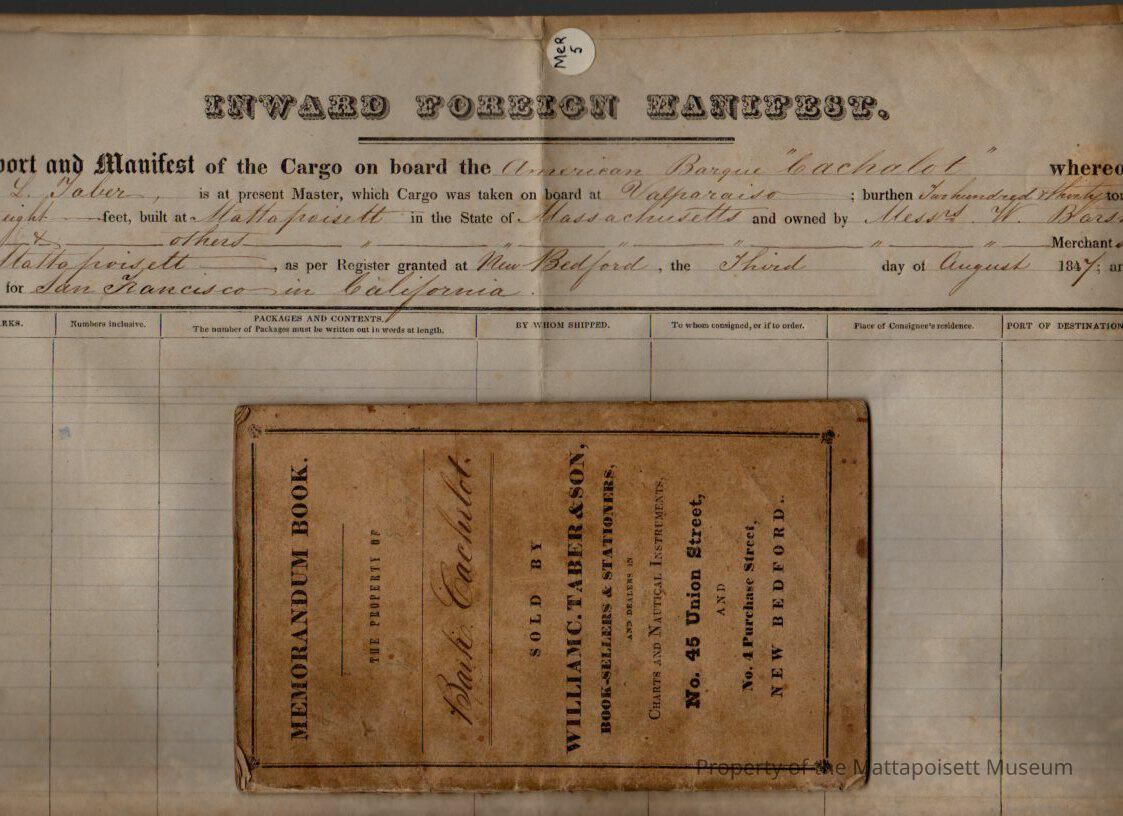 MeR
5
INWARD FOREIGN MANIFEST.
port and Manifest of the Cargo on board the American Barque "Cachalot" whereo
L. Taber, is at present Master, which Cargo was taken on board at Valparaiso ; burthen Two hundred & thirty ton
eight feet, built at Mattapoisett in the State of Massachusetts and owned by Messrs W. Bars
& others " " " " " " Merchant
Mattapoisett , as per Register granted at New Bedford , the Third day of August 1847; an
for San Francisco in California .
RKS. Numbers inclusive. PACKAGES AND CONTENTS. BY WHOM SHIPPED. To whom consigned, or if to order. Place of Consignee's residence. PORT OF DESTINATION
The number of Packages must be written out in words at length.
MEMORANDUM BOOK.
THE PROPERTY OF
Bark Cachelot.
SOLD BY
WILLIAM C. TABER & SON,
BOOK-SELLERS & STATIONERS,
AND DEALERS IN
CHARTS AND NAUTICAL INSTRUMENTS,
No. 45 Union Street,
AND
No. 4 Purchase Street,
NEW BEDFORD.
Property of the Mattapoisett Museum